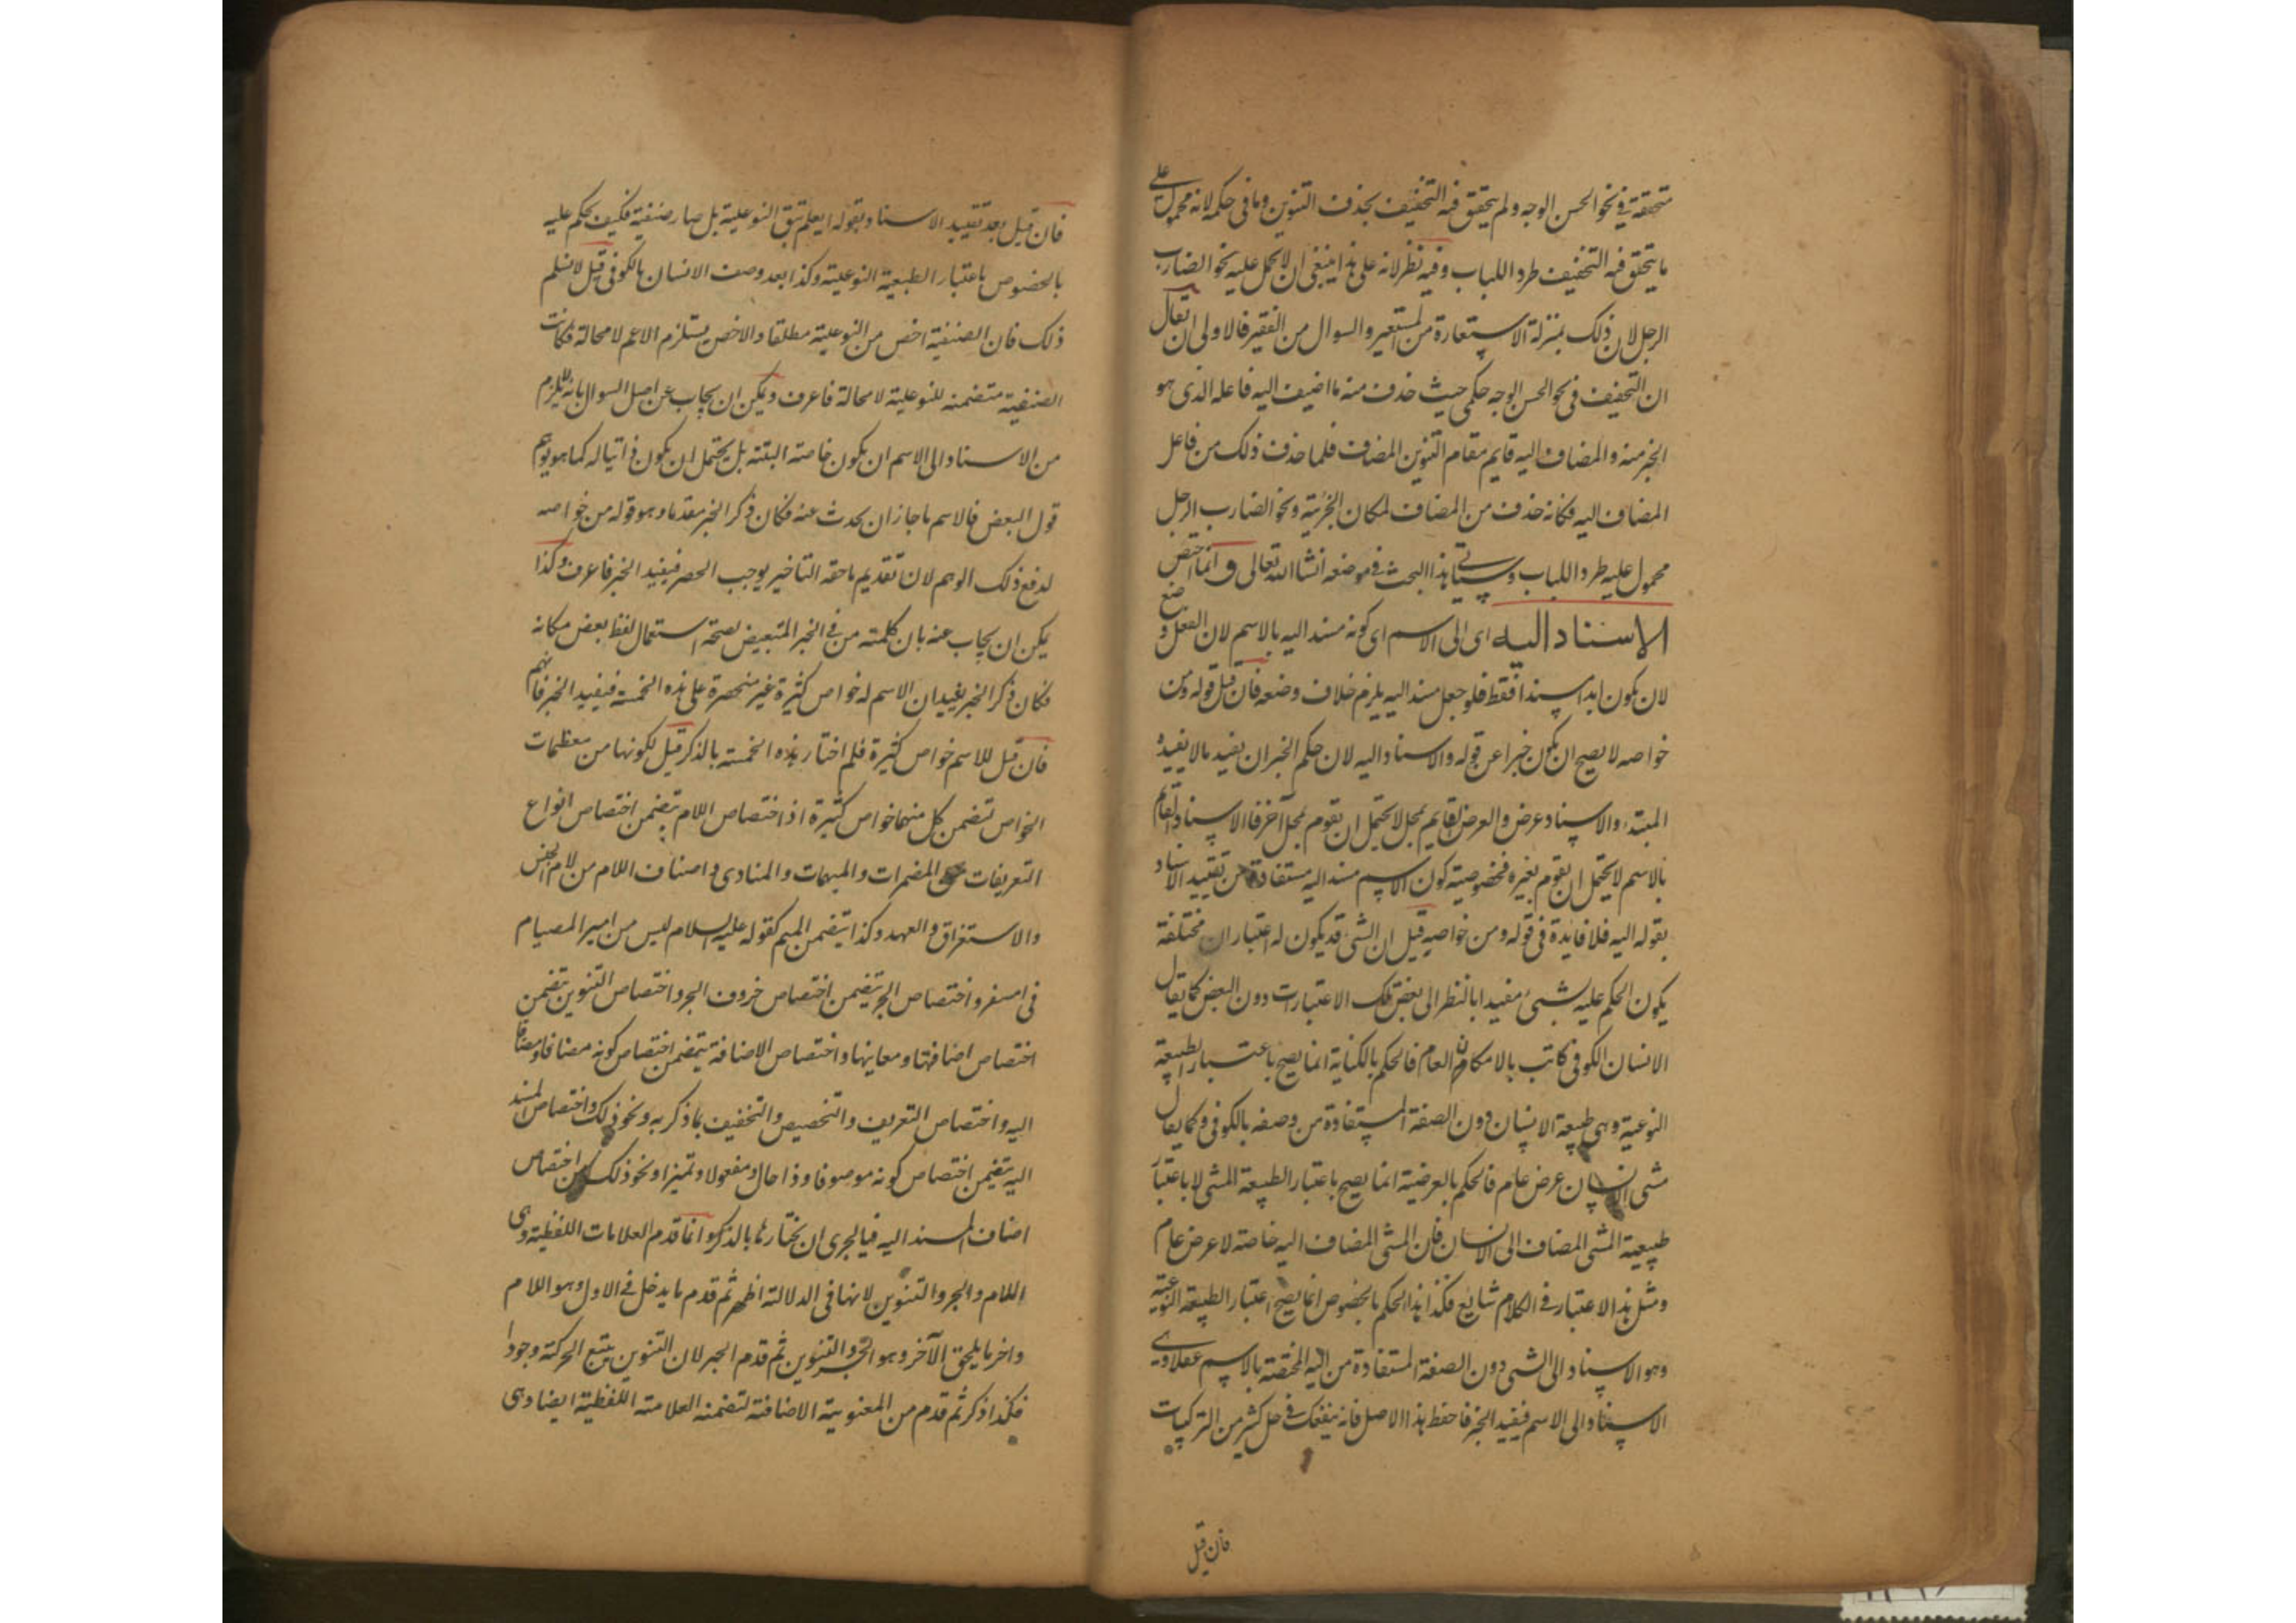 متحققة في نحو الحسن الوجه ولم يتحقق فيه التخفيف بحذف التنوين وما في حكمه لانه محمول على
ما يتحقق فيه التخفيف طردا للباب وفيه نظر لانه على هذا ينبغي ان لا يحمل عليه نحو الضارب
الرجل لان ذلك بمنزلة الاستعارة من المستعير والسوال من الفقير فالاولى ان يقال
ان التخفيف في نحو الحسن الوجه حكمي حيث حذف منه ما اضيف اليه فاعله الذى هو
الجز منه والمضاف اليه قايم مقام التنوين المضاف فلما حذف ذلك من فاعل
المضاف اليه فكانه حذف من المضاف لمكان الجزئية ونحو الضارب الرجل
محمول عليه طردا للباب وسياتي هذا البحث في موضعه انشا الله تعالى و انما اختص
الاسناد اليه اى الى الاسم اى كونه مسند اليه بالاسم لان الفعل وضع
لان يكون ابدا مسندا فقط فلو جعل مسند اليه يلزم خلاف وضعه فان قيل قوله ومن
خواصه لا يصح ان يكون خبرا عن قوله والاسناد اليه لان حكم الخبر ان يفيد مالا يفيده
المبتدء والاسناد عرض والعرض القايم بمحل لا يحتمل ان يقوم بمحل آخر فالاسناد القايم
بالاسم لا يحتمل ان يقوم بغيره فخصوصية كون الاسم مسند اليه مستفادة من تقييد الاسناد
بقوله اليه فلا فايدة في قوله ومن خواصه قيل ان الشى قد يكون له اعتباران مختلفة
يكون الحكم عليه بشىء مفيدا بالنظر الى بعض تلك الاعتبارات دون البعض كما يقال
الانسان الكوفي كاتب بالامكان العام فالحكم بالكتابة انما يصح باعتبار الطبيعة
النوعية وهى طبيعة الانسان دون الصفة المستفادة من وصفه بالكوفي وكما يقال
مشى الانسان عرض عام فالحكم بالعرضية انما يصح باعتبار الطبيعة المشى لا باعتبار
طبيعية المشى المضاف الى الانسان فان المشى المضاف اليه خاصة لا عرض عام
ومثل هذا الاعتبار في الكلام شايع فكذا هذا الحكم بالخصوص انما يصح اعتبار الطبيعة النوعية
وهو الاسناد الى الشى دون الصفة المستفادة من اليه المختصة بالاسم
الاسناد الى الاسم فيفيد الخبر فاحفظ هذا الاصل فانه ينفعك في حل كثير من التركيبات
فان قيل
فان قيل بعد تقييد الاسناد بقوله اليه لم تبق النوعية بل صار صنفية فكيف يحكم عليه
بالخصوص باعتبار الطبعية النوعلية وكذا بعد وصف الانسان بالكوفي قيل لا نسلم
ذلك فان الصنفية اخص من النوعية مطلقا والاخص يستلزم الاعم لا محالة فكانت
الصنفية متضمنه للنوعية لا محالة فاعرف ويمكن ان يجاب عن اصل السوال بانه لا يلزم
من الاسناد الى الاسم ان يكون خاصته البتة بل يحتمل ان يكون كما هو يوهم
قول البعض فالاسم ما جاز ان يحدث عنه فكان ذكر الخبر مقدما وهو قوله من خواصه
لدفع ذلك الوهم لان تقديم ما حقه التاخير يوجب الحصر فيفيد الخبر فاعرف وكذا
يمكن ان يجاب عنه بان كلمته من في الخبر للتبعيض لصحة استعمال لفظ بعض مكانه
فكان ذكر الخبر يفيد ان الاسم له خواص كثيرة غير منحصرة على هذه الخمسة فيفيد الخبر فافهم
فان قيل للاسم خواص كثيرة فلم اختار هذه الخمسة بالذكر قيل لكونها من معظمات
الخواص تتضمن كل منها خواص كثيرة اذ اختصاص اللام يتضمن اختصاص انواع
التعريفات المضمرات والمبهمات والمنادى واصناف اللام من لام الجنس
والاستغراق والعهد وكذا يتضمن الميم كقوله عليه السلام ليس من امبر امصيام
في امسفر واختصاص الجر يتضمن اختصاص حروف الجر واختصاص التنوين يتضمن
اختصاص اضافتها ومعاينها واختصاص الاضافة يتضمن اختصاص كونه مضافا ومضافا
اليه واختصاص التعريف والتخصيص والتخفيف بما ذكر به ونحو ذلك واختصاص المسند
اليه يتضمن اختصاص كونه موصوفا وذا حال ومفعولا وتميزا ونحو ذلك من اختصاص
اصناف المسند اليه فبالحرى ان يختارها بالذكر وانما قدم العلامات اللفظية وهى
اللام والجر والتنوين لانها في الدلالة اظهر ثم قدم ما يدخل في الاول وهو اللام
واخر ما يلحق الآخر وهو الجر والتنوين ثم قدم الجر لان التنوين يتبع الحركة وجودا
فكذا ذكر ثم قدم من المعنوية الاضافة لتضمنه العلامته اللفظية ايضا وهى